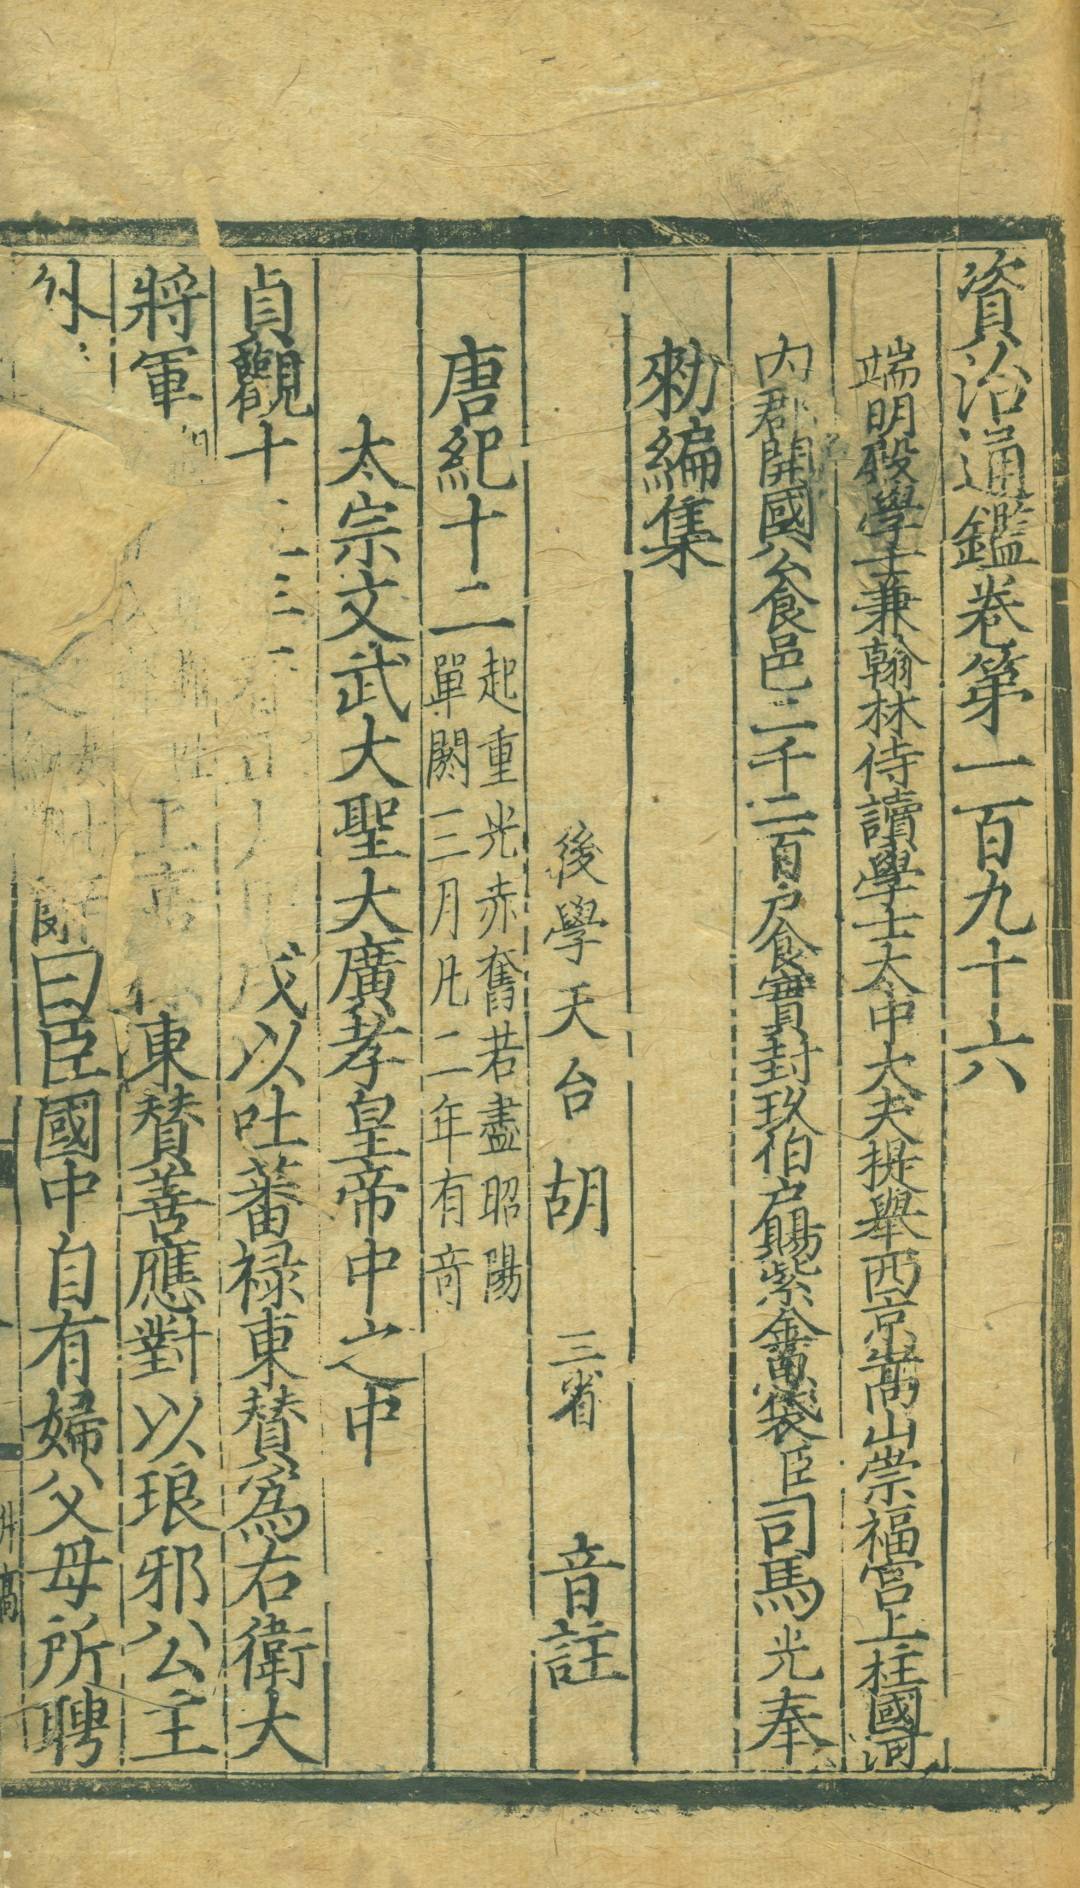 資治通鑑卷第一百九十六
端明殿學士兼翰林侍讀學士太中大夫提舉西京嵩山崇福宮上柱國河
內郡開國公食邑二千二百戶食實封玖伯戶賜紫金魚袋臣司馬光奉
勑編集
後學天台胡三省音註
唐紀十二
起重光赤奮若盡昭陽
單閼三月凡二年有奇
太宗文武大聖大廣孝皇帝中之中
貞觀十
戊以吐蕃祿東贊為右衛大
將軍
東贊善應對以琅邪公主
外
曰臣國中自有婦父母所聘